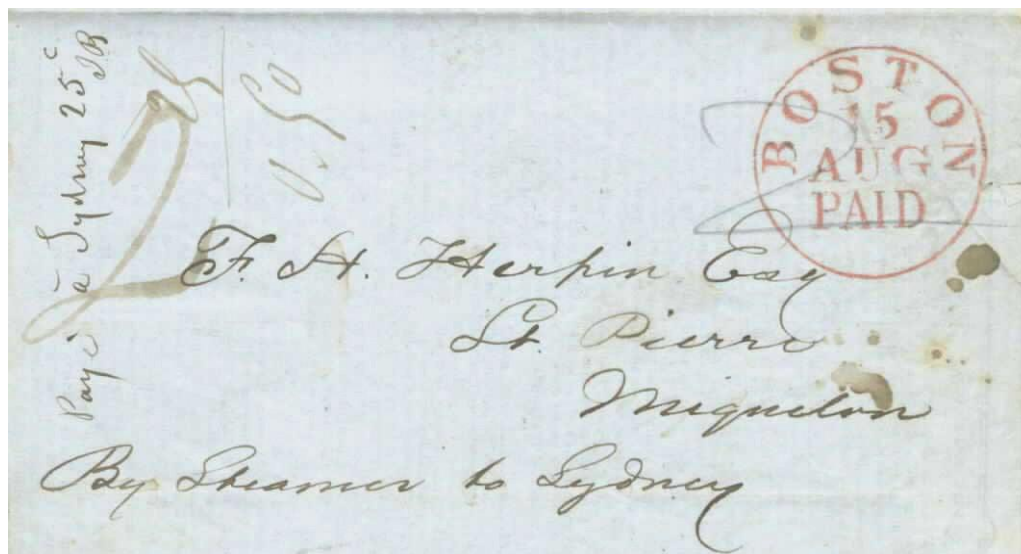 Payé à Sydney 25c
JB
1.50
BOSTON
15
AUG
PAID
2
F. H. Herpin Esq
St. Pierre
Miquelon
By Steamer to Sydney